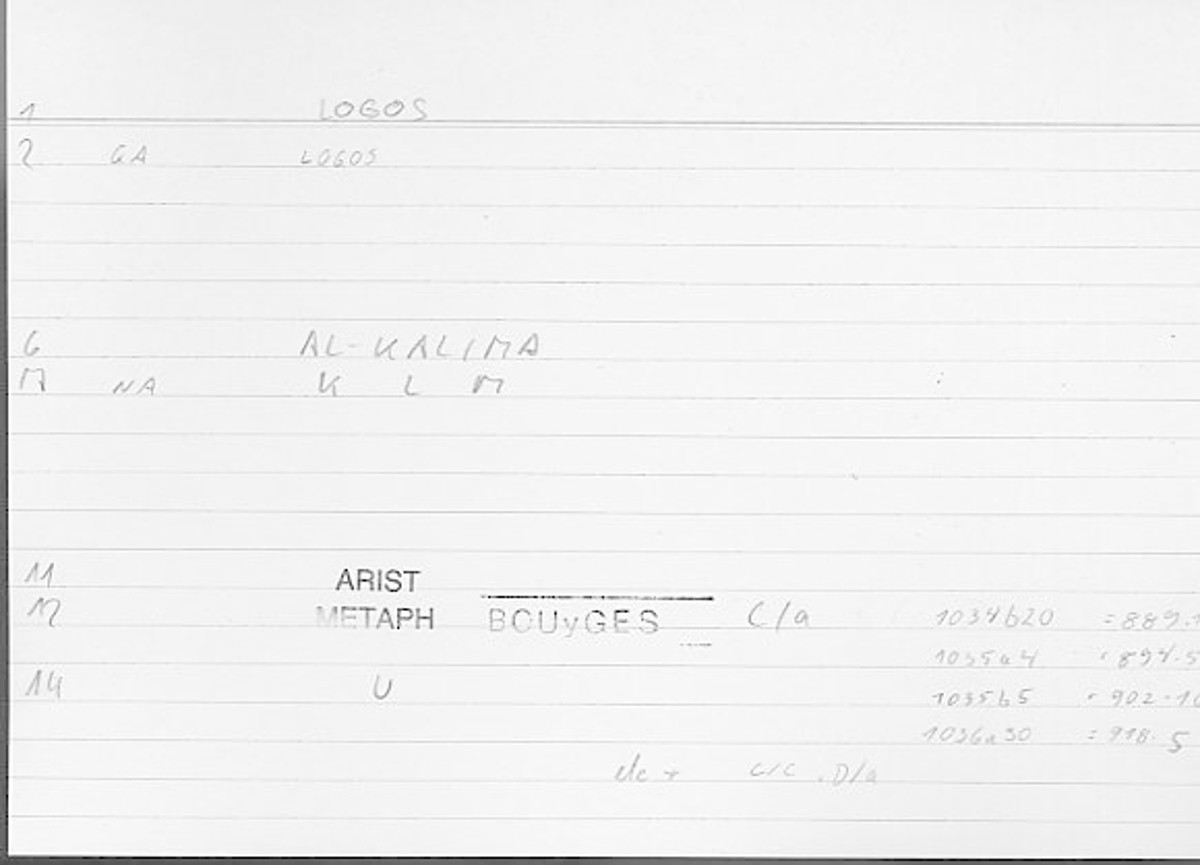 1 LOGOS
2 GA LOGOS
6 AL-KALIMA
M NA K L M
11 ARIST
12 METAPH BOUyGES C/a 1034b20 =889.1
1035a4 894.5
14 U 1035b5 902.10
1036a30 =918.5
etc C/C .D/a